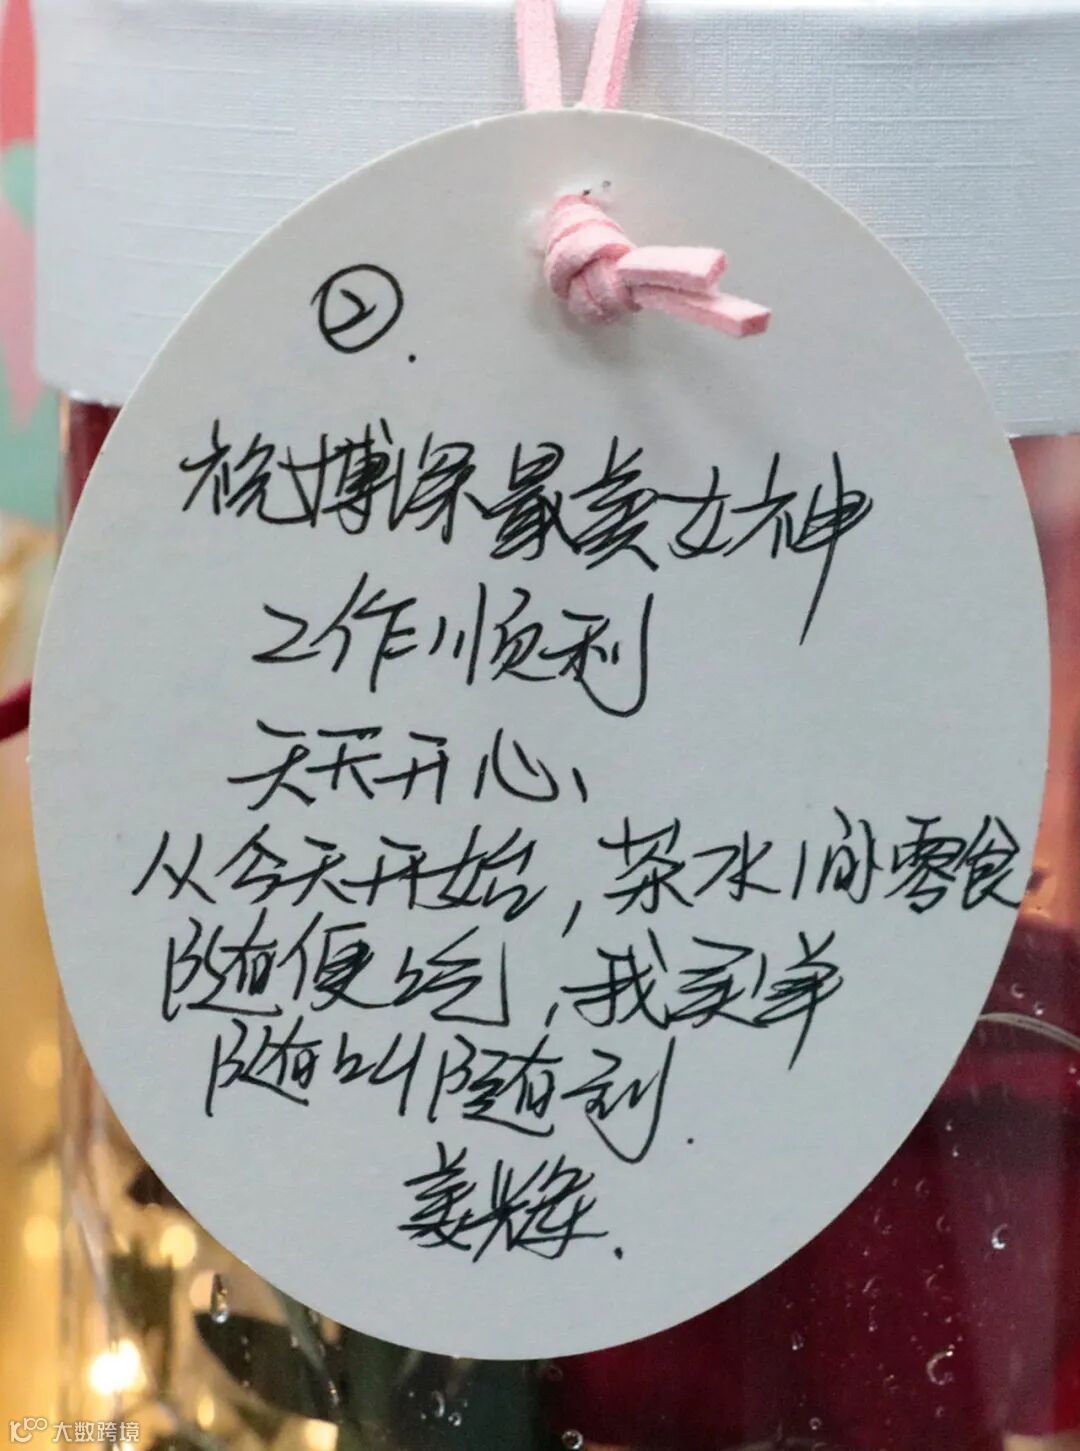 ②.
祝博深最美女神
工作顺利
天天开心、
从今天开始,茶水间零食
随便吃,我买单
随叫随到.
姜辉.
大数跨境